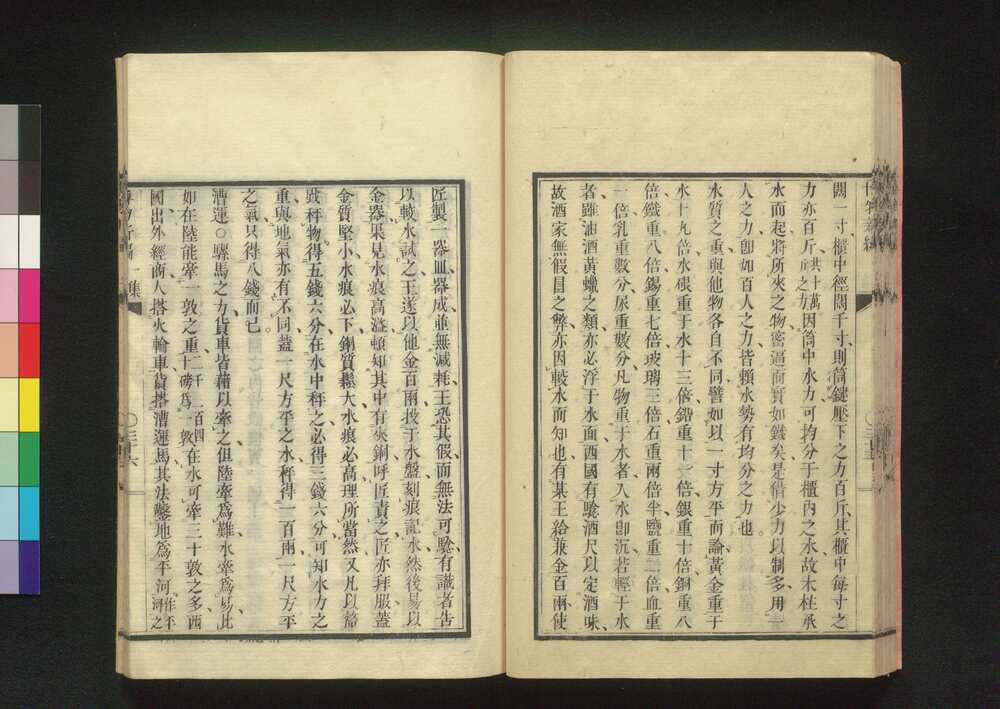 闊一寸、櫃中徑闊千寸、則筒鍵壓下之力百斤、其櫃中每寸之
力亦百斤、共十萬斤之力、因筒中水力可均分于櫃內之水、故木柱承
水而起、將所夾之物、密逼而實如鐵矣、是借少力以制多用、一
人之力、卽如百人之力、皆賴水勢有均分之力也。
水質之重、與他物各自不同、譬如以一寸方平而論、黃金重于
水十九倍、水銀重于水十三倍、鉛重十一倍、銀重十倍、銅重八
倍、鐵重八倍、錫重七倍、玻璃三倍、石重兩倍半、鹽重二倍、血重
一倍、乳重數分、尿重數分、凡物重于水者、入水卽沉、若輕于水
者、雖油酒黃蠟之類、亦必浮于水面、西國有騐酒尺、以定酒味、
故酒家無假冒之弊、亦因較水而知也、有某王給兼金百兩、使
匠製一器皿、器成並無減耗、王恐其假、而無法可騐、有識者告
以較水試之、王遂以他金百兩、投于水盤、刻痕記水、然後易以
金器、果見水痕高溢、頓知其中有夾銅、呼匠責之、匠亦拜服、蓋
金質堅小、水痕必下、銅質鬆大、水痕必高、理所當然、又凡以
秤物、得五錢六分、在水中秤之、必得三錢六分、可知水力之
重、與地氣亦有不同、蓋一尺方平之水、秤得一百兩、一尺方平
之氣、只得八錢而已。
漕運○騾馬之力、貨車皆藉以牽之、但陸牽爲難、水牽爲易、此
如在陸能牽一敦之重、二千二百四十磅爲一敦、在水可牽三十敦之多、西
國出外經商人搭火輪車、貨搭漕運馬、其法鑿地爲平河、作平河之
博物新編 一集 三十六